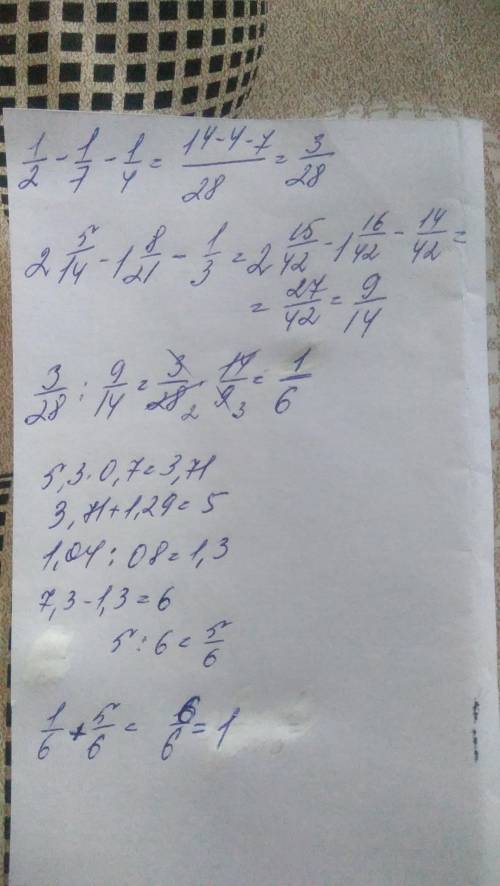 1/2 - 1/7 - 1/4 = (14-4-7)/28 = 3/28
2 5/14 - 1 8/21 - 1/3 = 2 15/42 - 1 16/42 - 14/42 =
= 27/42 = 9/14
3/28 : 9/14 = 3/28 2 · 14/9 3 = 1/6
5,3·0,7=3,71
3,71+1,29=5
1,04:08=1,3
7,3-1,3=6
5:6=5/6
1/6 + 5/6 = 6/6 = 1